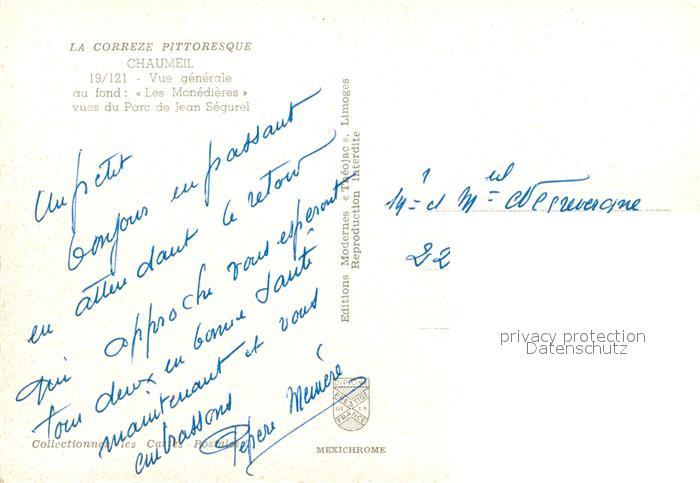 LA CORREZE PITTORESQUE
CHAUMEIL
19/121 - Vue générale
au fond : « Les Monédières »
vues du Parc de Jean Ségurel
Un petit
bonjour en passant
en attendant le retour
qui approche vous esperont
tous deux en bonne santé
maintenant et vous
embrassons
Pépère Mémère
Collectionnez les Cartes Postales
Editions Modernes « Théojac », Limoges
Reproduction interdite
DIPLOME
PRESTIGE
DE LA
FRANCE
MEXICHROME
Mr et Mel
22
privacy protection
Datenschutz